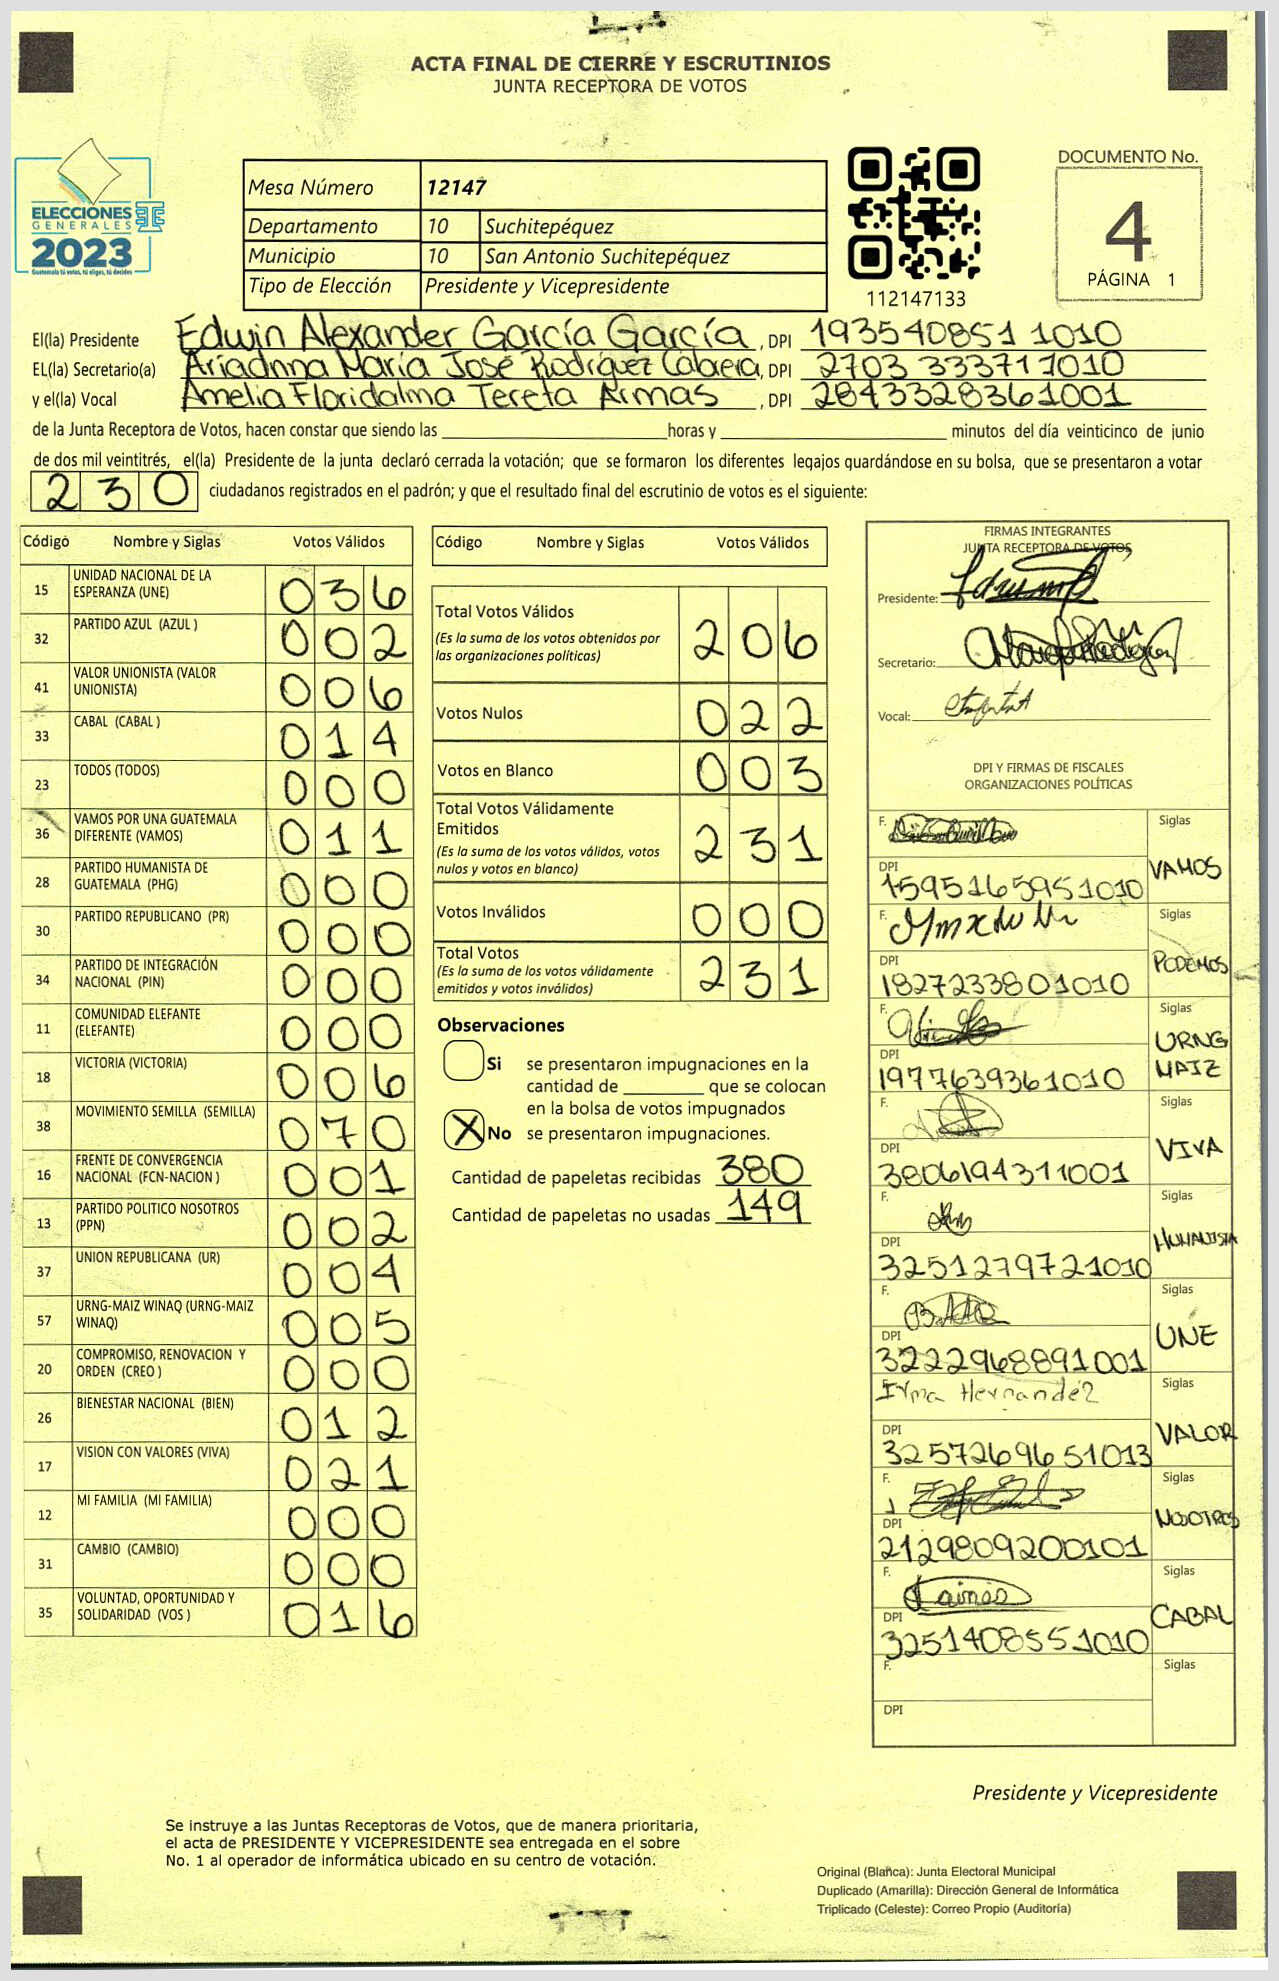 ACTA FINAL DE CIERRE Y ESCRUTINIOS
JUNTA RECEPTORA DE VOTOS
ELECCIONES
GENERALES
2023
Guatemala tú votas, tú eliges, tú decides
Mesa Número 12147
Departamento 10 Suchitepéquez
Municipio 10 San Antonio Suchitepéquez
Tipo de Elección Presidente y Vicepresidente
112147133
DOCUMENTO No.
4
PÁGINA 1
El(la) Presidente Edwin Alexander García García, DPI 193540851 1010
EL(la) Secretario(a) Ariadnna María José Rodríguez Cabrera, DPI 2703 333711010
y el(la) Vocal Amelia Floridalma Tereta Armas, DPI 2843328361001
de la Junta Receptora de Votos, hacen constar que siendo las horas y minutos del día veinticinco de junio
de dos mil veintitrés, el(la) Presidente de la junta declaró cerrada la votación; que se formaron los diferentes legajos guardándose en su bolsa, que se presentaron a votar
230 ciudadanos registrados en el padrón; y que el resultado final del escrutinio de votos es el siguiente:
Código Nombre y Siglas Votos Válidos
15 UNIDAD NACIONAL DE LA ESPERANZA (UNE) 036
32 PARTIDO AZUL (AZUL ) 002
41 VALOR UNIONISTA (VALOR UNIONISTA) 006
33 CABAL (CABAL ) 014
23 TODOS (TODOS) 000
36 VAMOS POR UNA GUATEMALA DIFERENTE (VAMOS) 011
28 PARTIDO HUMANISTA DE GUATEMALA (PHG) 000
30 PARTIDO REPUBLICANO (PR) 000
34 PARTIDO DE INTEGRACIÓN NACIONAL (PIN) 000
11 COMUNIDAD ELEFANTE (ELEFANTE) 000
18 VICTORIA (VICTORIA) 006
38 MOVIMIENTO SEMILLA (SEMILLA) 070
16 FRENTE DE CONVERGENCIA NACIONAL (FCN-NACION ) 001
13 PARTIDO POLITICO NOSOTROS (PPN) 002
37 UNION REPUBLICANA (UR) 004
57 URNG-MAIZ WINAQ (URNG-MAIZ WINAQ) 005
20 COMPROMISO, RENOVACION Y ORDEN (CREO ) 000
26 BIENESTAR NACIONAL (BIEN) 012
17 VISION CON VALORES (VIVA) 021
12 MI FAMILIA (MI FAMILIA) 000
31 CAMBIO (CAMBIO) 000
35 VOLUNTAD, OPORTUNIDAD Y SOLIDARIDAD (VOS ) 016
Código Nombre y Siglas Votos Válidos
Total Votos Válidos 206
(Es la suma de los votos obtenidos por
las organizaciones políticas)
Votos Nulos 022
Votos en Blanco 003
Total Votos Válidamente
Emitidos 231
(Es la suma de los votos válidos, votos
nulos y votos en blanco)
Votos Inválidos 000
Total Votos 231
(Es la suma de los votos válidamente
emitidos y votos inválidos)
Observaciones
Si se presentaron impugnaciones en la
cantidad de que se colocan
en la bolsa de votos impugnados
X No se presentaron impugnaciones.
Cantidad de papeletas recibidas 380
Cantidad de papeletas no usadas 149
FIRMAS INTEGRANTES
JUNTA RECEPTORA DE VOTOS
Presidente:
Secretario:
Vocal:
DPI Y FIRMAS DE FISCALES
ORGANIZACIONES POLÍTICAS
F. Siglas
DPI 1595165951010 VAMOS
F. Siglas
DPI 1827233801010 PODEMOS
F. Siglas
DPI 1977639361010 URNG MAIZ
F. Siglas
DPI 3806194311001 VIVA
F. Siglas
DPI 3251279721010 HUMANISTA
F. Siglas
DPI 3222968891001 UNE
Irma Hernandéz Siglas
DPI 3257269651013 VALOR
F. Siglas
DPI 2129809200101 NOSOTROS
F. Siglas
DPI 3251408551010 CABAL
F. Siglas
DPI
Presidente y Vicepresidente
Se instruye a las Juntas Receptoras de Votos, que de manera prioritaria,
el acta de PRESIDENTE Y VICEPRESIDENTE sea entregada en el sobre
No. 1 al operador de informática ubicado en su centro de votación.
Original (Blanca): Junta Electoral Municipal
Duplicado (Amarilla): Dirección General de Informática
Triplicado (Celeste): Correo Propio (Auditoría)